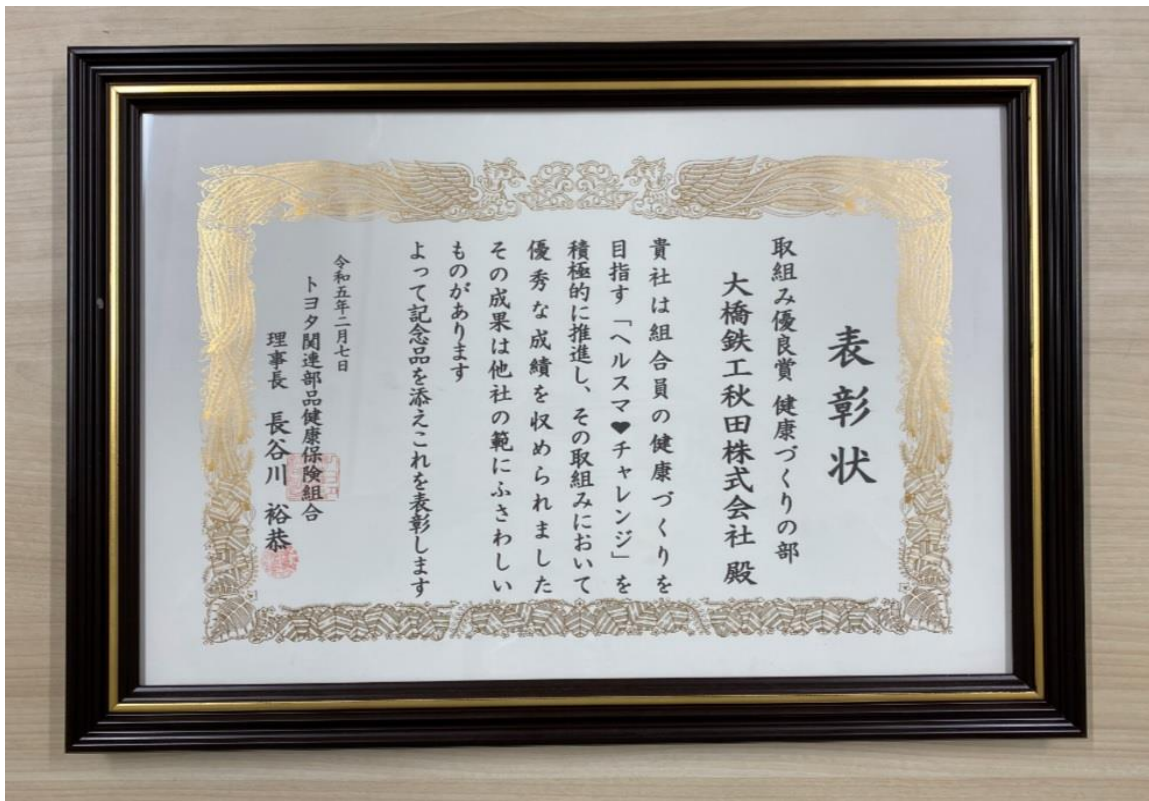 表彰状
取組み優良賞 健康づくりの部
大橋鉄工秋田株式会社 殿
貴社は組合員の健康づくりを
目指す「ヘルスマ♥チャレンジ」を
積極的に推進し、その取組みにおいて
優秀な成績を収められました
その成果は他社の範にふさわしい
ものがあります
よって記念品を添えこれを表彰します
令和五年二月七日
トヨタ関連部品健康保険組合
理事長 長谷川 裕恭